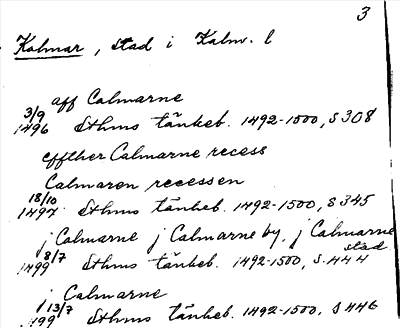 3
Kalmar, stad i Kalm. l
aff Calmarne
3/9
1496 Sthms tänkeb. 1492-1500, s 308
effther Calmarne recess
Calmaren recessen
18/10
1497 Sthms tänkeb. 1492-1500, s 345
j Calmarne j Calmarne by, j Calmarne
stad
8/7
1499 Sthms tänkeb. 1492-1500, s. 444
j Calmarne
13/7
1499 Sthms tänkeb. 1492-1500, s 446